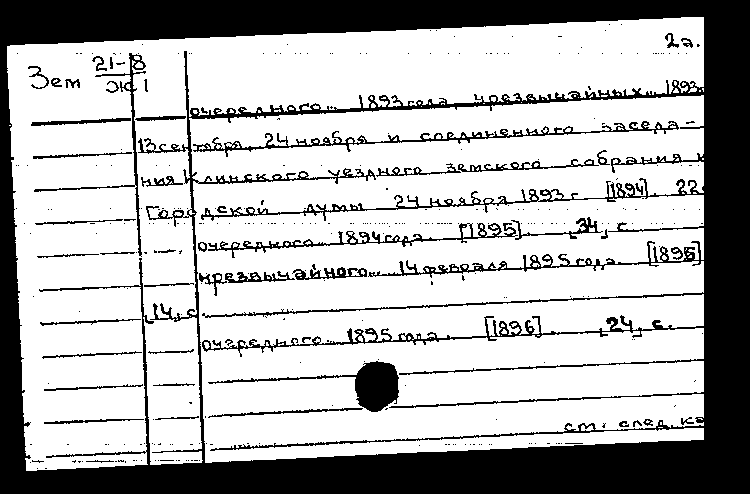 2а.
Зем 21-8
Ж 1
очередного... 1893 года, чрезвычайных... 1893
13 сентября, 24 ноября и соединенного заседа-
ния Клинского уездного земского собрания и
Городской думы 24 ноября 1893 г [1894]. 22
очередного... 1894 года. [1895] 34, с.
чрезвычайного... 14 февраля 1895 года. [1895]
14, с.
очередного... 1895 года. [1896]. 24, с.
см. след. ка